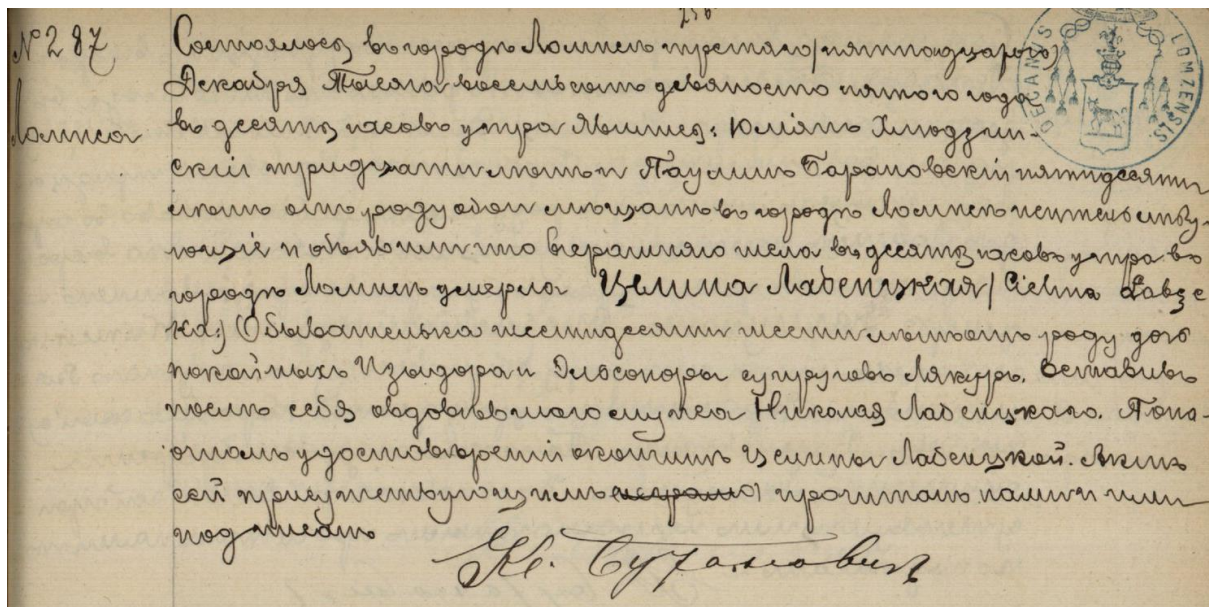 № 287
Ломжа
Состоялось въ городѣ Ломжѣ третяго /пятнадцатого/
Декабря Тысяча восемьсотъ девяносто пятого года
въ десять часовъ утра Явились: Юліянъ Хлюдзин-
скій тридцати лѣтъ и Паулинъ Барановскій пятидесяти
лѣтъ отъ роду обои мѣщане въ городѣ Ломжѣ жительству-
ющіе и объявили что вчерашняго числа въ десять часовъ утра въ
городѣ Ломжѣ умерла Целина Лабенцкая / Cielina Łabęc
ka:/ Обывателька шестидесяти шести лѣтъ отъ роду дочь
покойныхъ Изыдора и Элеоноры супруговъ Лякуръ. Оставивъ
послѣ себя овдовѣвшаго мужа Николая Лабенцкаго. По на-
очномъ удостовѣреніи о кончинѣ Целины Лабенцкой. Актъ
сей присутствующимъ прочитанъ нами и
подписанъ
DECANUS LOMZENSIS